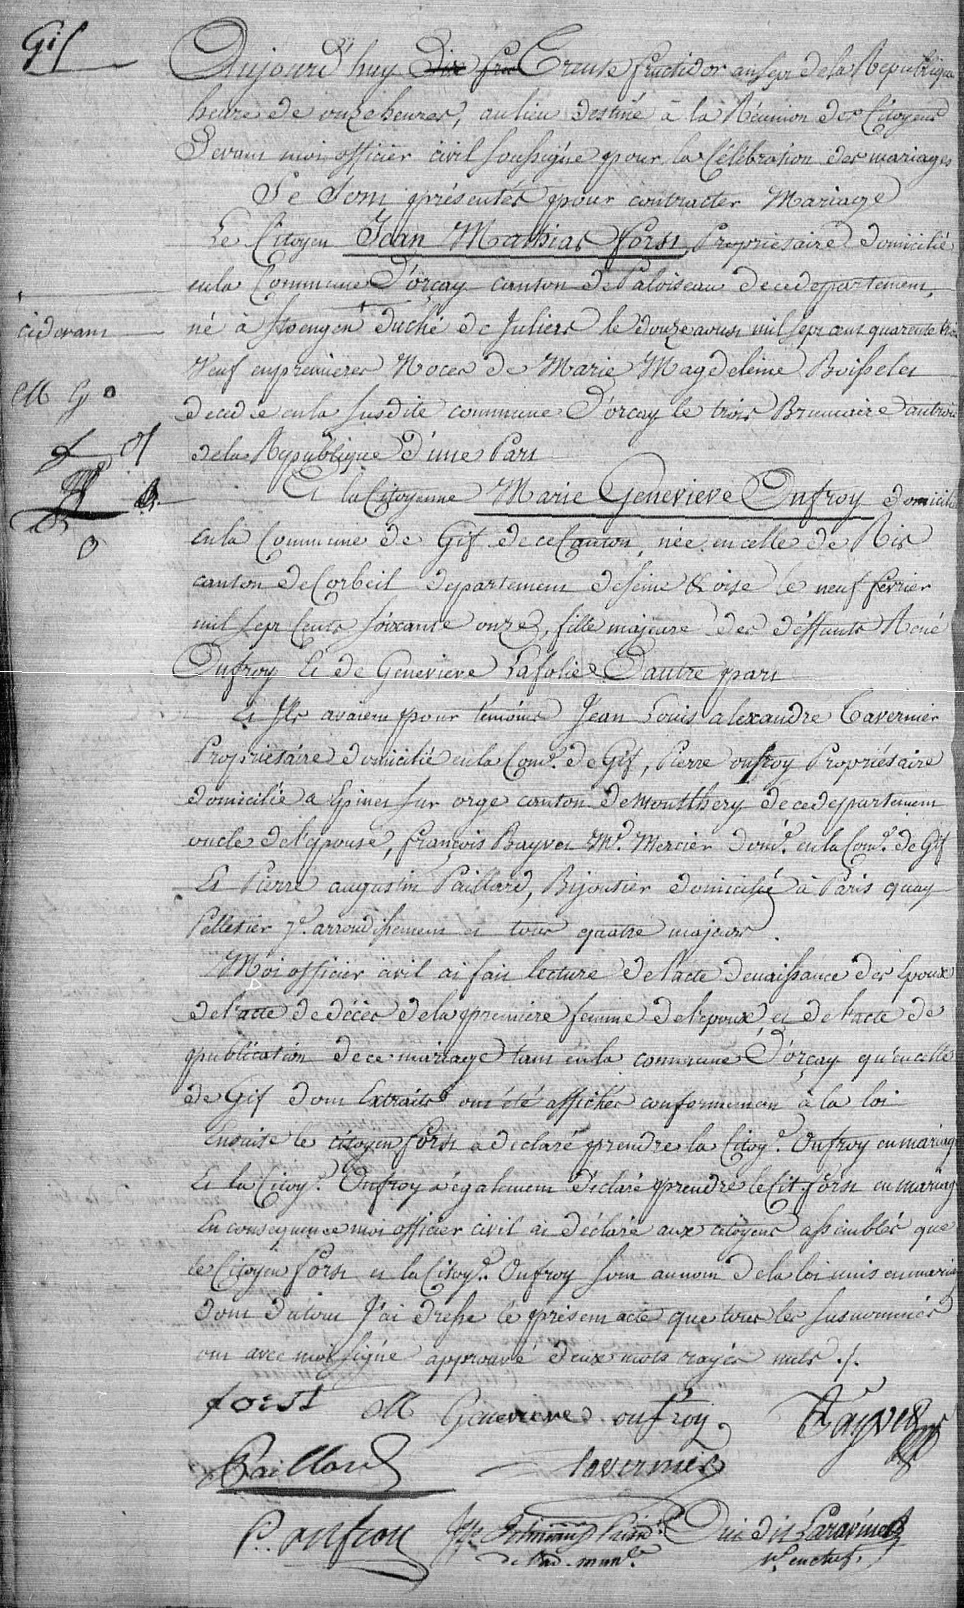 Gif
Aujourd'huy Dix fru Trente fructidor an sept de la Republique
heure de onze heures, au lieu destiné à la Réunion des Citoyens
Devant moi officier civil soussigné pour la Célébration des mariages
Se sont présentés pour contracter Mariage
Le Citoyen Jean Mathias Forst Propriétaire domicilié
en la Commune D'orçay canton de Palaiseau de ce departement,
ci devant
né à duché de Juliers le douze aoust mil sept cent quarente trois
Veuf en premières Noces de Marie Magdeleine Boisselet
décédée en la susdite commune D'orçay le trois Brumaire an trois
de la République d'une Part
M G o
Et la Citoyenne Marie Genevieve Onfroy domiciliée
en la Commune de Gif de ce Canton, née en celle de Ris
canton de Corbeil departement de Seine & oise le neuf fevrier
mil sept Cents soixante onze, fille majeure des deffunts René
Onfroy Et de Genevieve Lafolie D'autre part
Et Ils avaient pour témoins Jean Louis alexandre Tavernier
Propriétaire domicilié en la Come. de Gif, Pierre onfroy Propriétaire
domicilié a Epinay sur orge canton de Montlhery de ce departement
oncle de l'epouse, françois Bayvet Md. Mercier domé. en la Come. de Gif
Et Pierre augustin Paillard, Bijoutier domicilié à Paris quay
Pelletier 7e. arrondissement et tous quatre majeurs.
Moi officier civil ai fait lecture de l'acte de naissance des Epoux
de l'acte de décès de la première femme de l'epoux et de l'acte de
publication de ce mariage tant en la commune D'orçay qu'en celle
de Gif dont Extraits ont été affichés conformement à la loi
Ensuite le citoyen Forst a declaré prendre la Citoye. Onfroy en mariage
Et la Citoye. Onfroy a également déclaré prendre le Cit. forst en mariage
En consequence moi officier civil ai déclaré aux citoyens assemblés que
le Citoyen Forst et la Citoye. Onfroy sont au nom de la loi unis en mariage
dont du tout J'ai dressé le présent acte que tous les susnommés
ont avec moi signé approuvé deux mots rayés nuls ./.
forst M Genevieve onfroy Bayvet
Paillard tavernier
P. onfroy